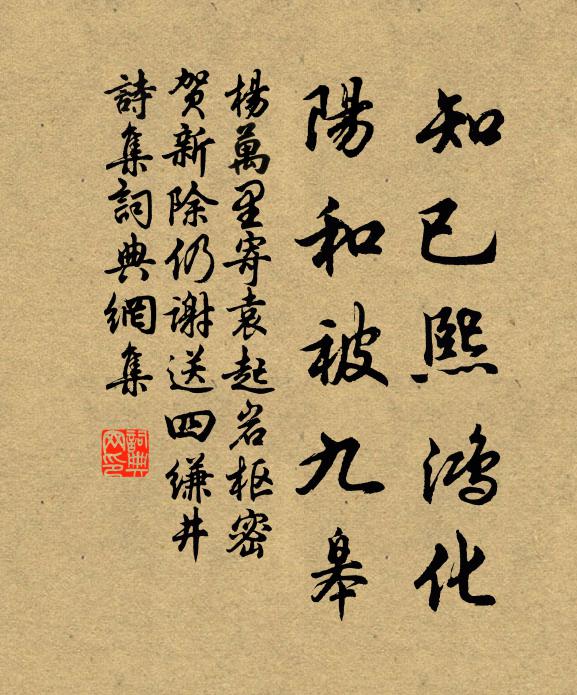 知已熙鴻化
陽和被九皋
楊萬里寄袁起岩枢密
贺新除仍謝送四缣井
詩集詞典網集
詞典網印